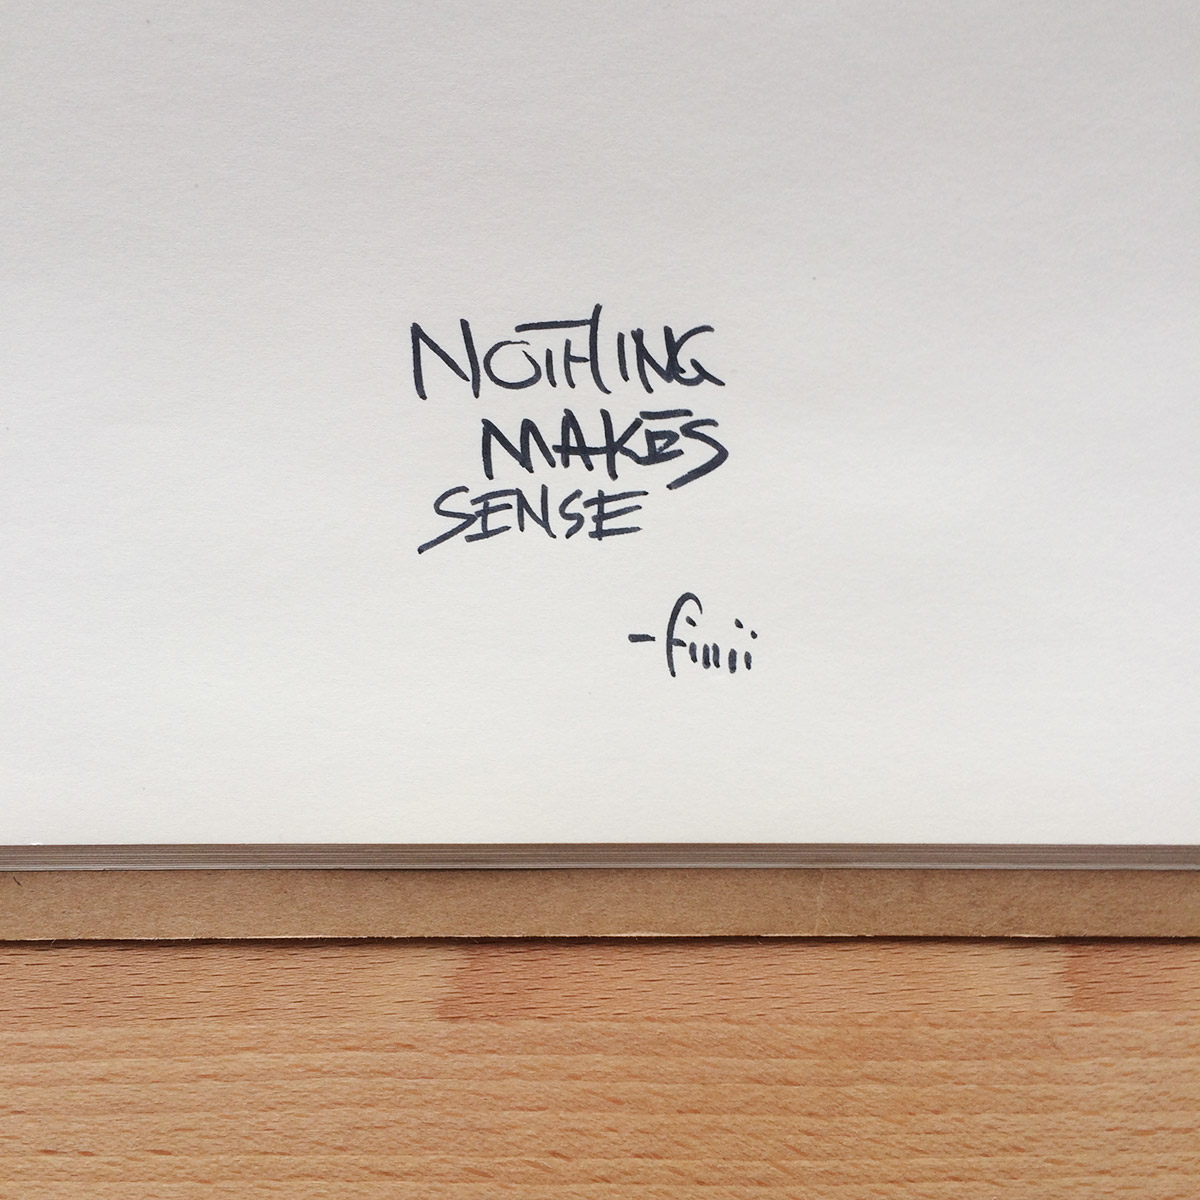 NOTHING
MAKES
SENSE